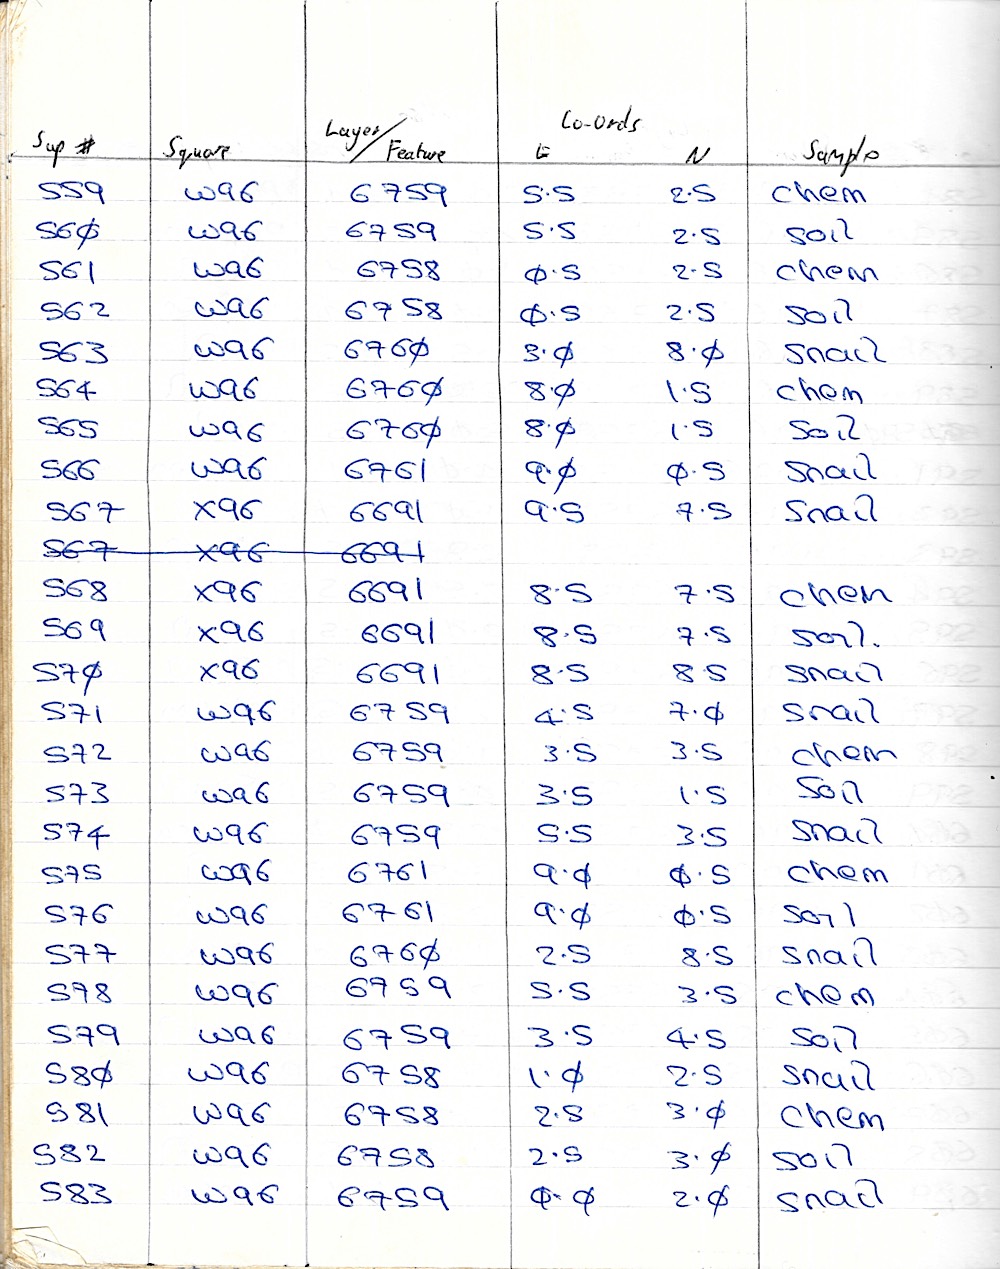 Co-Ords
Smp # Square Layer/Feature E N Sample
559 W96 6759 5.5 2.5 chem
560 W96 6759 5.5 2.5 soil
561 W96 6758 0.5 2.5 chem
562 W96 6758 0.5 2.5 soil
563 W96 6760 3.0 8.0 snail
564 W96 6760 8.0 1.5 chem
565 W96 6760 8.0 1.5 soil
566 W96 6761 9.0 0.5 snail
567 X96 6691 9.5 7.5 snail
567 X96 6691
568 X96 6691 8.5 7.5 chem
569 X96 6691 8.5 7.5 soil.
570 X96 6691 8.5 8.5 snail
571 W96 6759 4.5 7.0 snail
572 W96 6759 3.5 3.5 chem
573 W96 6759 3.5 1.5 soil
574 W96 6759 5.5 3.5 snail
575 W96 6761 9.0 0.5 chem
576 W96 6761 9.0 0.5 soil
577 W96 6760 2.5 8.5 snail
578 W96 6759 5.5 3.5 chem
579 W96 6759 3.5 4.5 soil
580 W96 6758 1.0 2.5 snail
581 W96 6758 2.5 3.0 chem
582 W96 6758 2.5 3.0 soil
583 W96 6759 0.0 2.0 snail